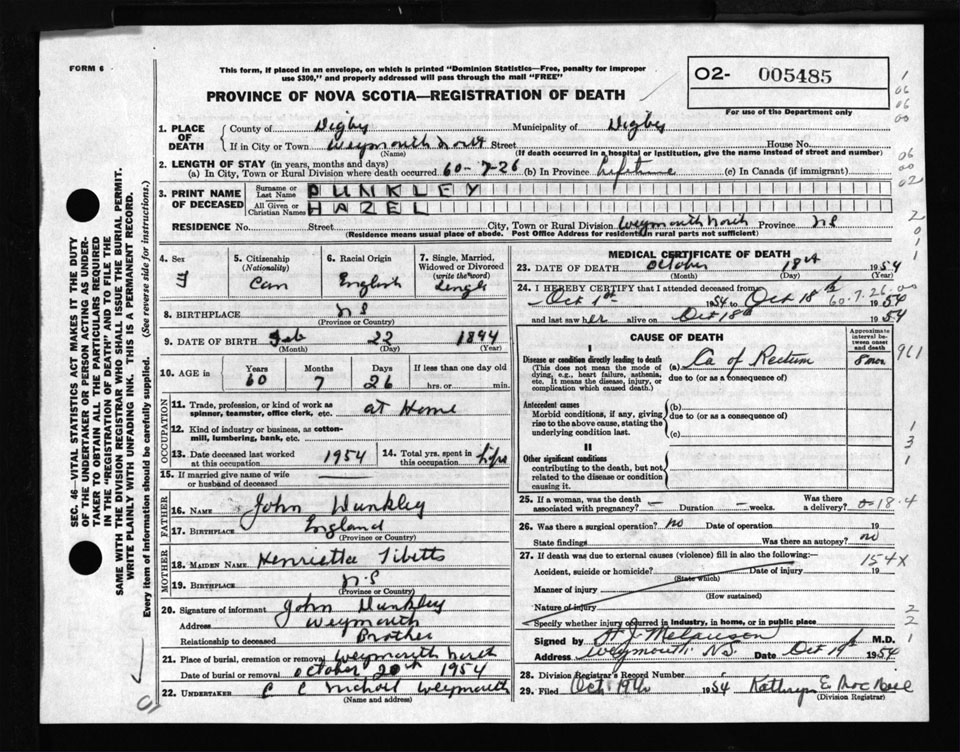 FORM 6
This form, if placed in an envelope, on which is printed "Dominion Statistics—Free, penalty for improper
use $300," and properly addressed will pass through the mail "FREE"
PROVINCE OF NOVA SCOTIA—REGISTRATION OF DEATH
02- 005485
For use of the Department only
1. PLACE OF DEATH
County of Digby Municipality of Digby
If in City or Town Weymouth North Street House No.
(Name) (If death occurred in a hospital or institution, give the name instead of street and number)
2. LENGTH OF STAY (in years, months and days)
(a) In City, Town or Rural Division where death occurred 60-7-26 (b) In Province Lifetime (c) In Canada (if immigrant)
3. PRINT NAME OF DECEASED
Surname or Last Name DUNKLEY
All Given or Christian Names HAZEL
RESIDENCE No. Street City, Town or Rural Division Weymouth North Province NS
(Residence means usual place of abode. Post Office Address for residents in rural parts not sufficient)
4. Sex F
5. Citizenship (Nationality) Can
6. Racial Origin English
7. Single, Married, Widowed or Divorced (write the word) Single
8. BIRTHPLACE N S
(Province or Country)
9. DATE OF BIRTH Feb 22 1894
(Month) (Day) (Year)
10. AGE in Years 60 Months 7 Days 26 If less than one day old hrs. or min.
OCCUPATION
11. Trade, profession, or kind of work as spinner, teamster, office clerk, etc. at Home
12. Kind of industry or business, as cotton-mill, lumbering, bank, etc.
13. Date deceased last worked at this occupation 1954
14. Total yrs. spent in this occupation
15. If married give name of wife or husband of deceased
FATHER
16. NAME John Dunkley
17. BIRTHPLACE England
(Province or Country)
MOTHER
18. MAIDEN NAME Henrietta Tibetts
19. BIRTHPLACE N-S
(Province or Country)
20. Signature of informant John Dunkley
Address Weymouth
Relationship to deceased Brother
21. Place of burial, cremation or removal Weymouth North
Date of burial or removal October 20th 1954
22. UNDERTAKER Weymouth
(Name and address)
MEDICAL CERTIFICATE OF DEATH
23. DATE OF DEATH October 18th 1954
(Month) (Day) (Year)
24. I HEREBY CERTIFY that I attended deceased from
Oct 1st 1954 to Oct 18th 1954
60.7.26.00
and last saw her alive on Oct 18th 1954
CAUSE OF DEATH
Approximate interval between onset and death
I
Disease or condition directly leading to death
(This does not mean the mode of dying, e.g., heart failure, asthenia, etc. It means the disease, injury, or complication which caused death.)
(a) Ca of Rectum 8 mos
due to (or as a consequence of)
Antecedent causes
Morbid conditions, if any, giving rise to the above cause, stating the underlying condition last.
(b)
due to (or as a consequence of)
(c)
II
Other significant conditions
contributing to the death, but not related to the disease or condition causing it.
25. If a woman, was the death associated with pregnancy? — Duration — weeks. Was there a delivery?
26. Was there a surgical operation? no Date of operation 19
State findings Was there an autopsy? no
27. If death was due to external causes (violence) fill in also the following:—
154X
Accident, suicide or homicide? Date of injury 19
(State which)
Manner of injury
(How sustained)
Nature of injury
Specify whether injury occurred in industry, in home, or in public place
Signed by M.D.
Address Weymouth NS. Date Oct 19th 1954
28. Division Registrar's Record Number
29. Filed Oct 19th 1954 Kathryn E.
(Division Registrar)
SEC. 46—VITAL STATISTICS ACT MAKES IT THE DUTY
OF THE UNDERTAKER OR PERSON ACTING AS UNDER-
TAKER TO OBTAIN ALL THE PARTICULARS REQUIRED
IN THE "REGISTRATION OF DEATH" AND TO FILE THE
SAME WITH THE DIVISION REGISTRAR WHO SHALL ISSUE THE BURIAL PERMIT.
WRITE PLAINLY WITH UNFADING INK. THIS IS A PERMANENT RECORD.
Every item of information should be carefully supplied. (See reverse side for instructions.)